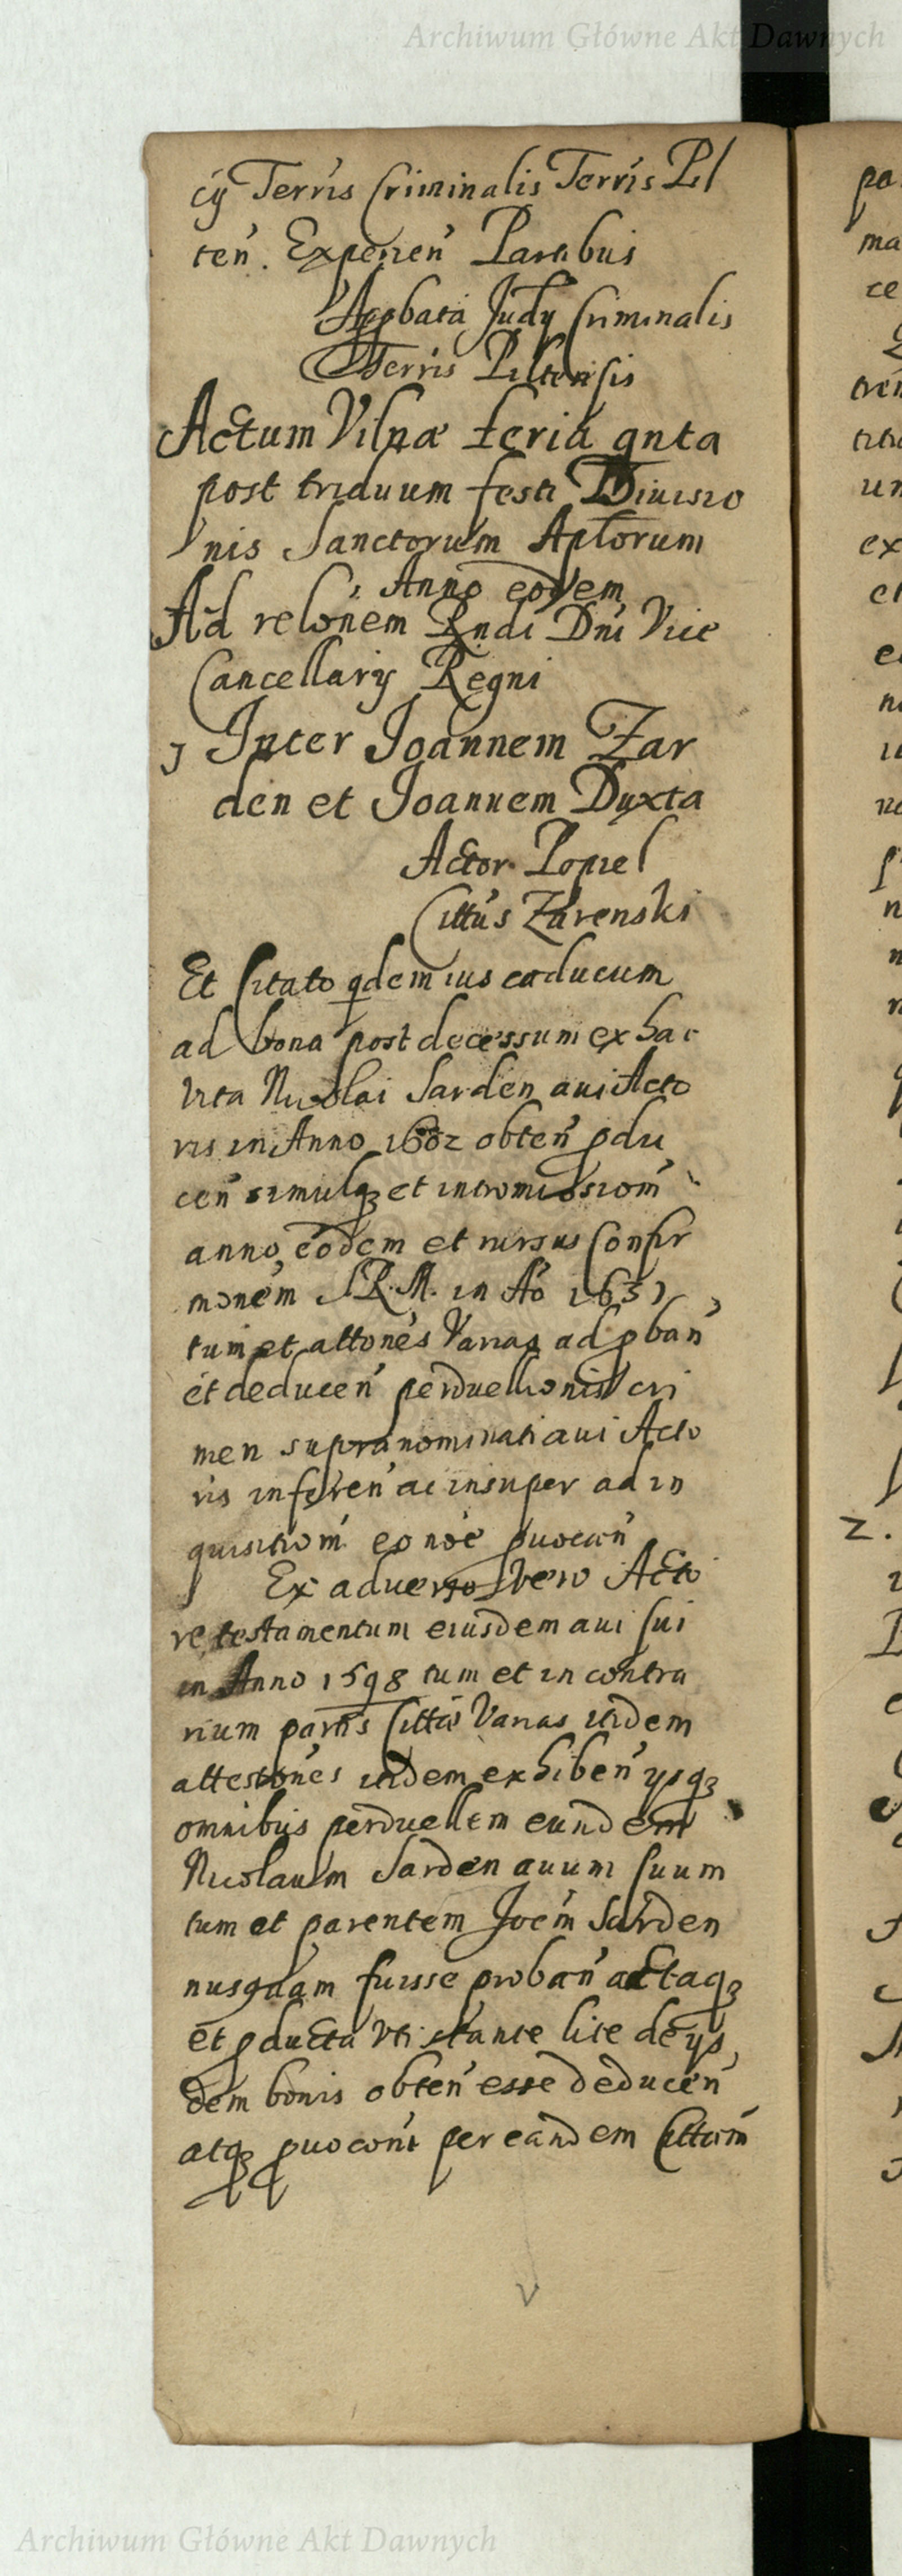 Archiwum Główne Akt Dawnych
cÿ Terris Criminalis Terris Pil
ten̄. Expedien̄ Partibus
Appbata Judÿ Criminalis
Terris Piltensis
Actum Vilnæ feria qnta
post triduum festi Diuisio
nis Sanctorum Aplorum
Anno eodem
Ad relonem Rndi Dni Vice
Cancellarÿ Regni
Inter Joannem Zar
den et Joannem Duxta
Actor Popiel
Cittus Zarenski
Et Citato qdem ius caducum
ad bona post decessum ex hac
vita Nicolai Sarden aui Acto
ris in Anno 1602 obten̄ pdu
cen̄ simulq₃ et intromissiom̄
anno eodem et rursus Confir
monem S.R.M. in Ao 1631
tum et attones Varias ad pban̄
et deducen̄ perduellionis cri
men supranominati aui Acto
ris inferen̄ ac insuper ad in
quisitiom̄ eo noe
Ex aduerso vero Acto
re testamentum eiusdem aui sui
in Anno 1598 tum et in contra
rium partis Cittæ Varias itidem
attestones itidem exhiben̄ ysq₃
omnibus perduellem eundem
Nicolaum Sarden auum suum
tum et parentem Joem Sarden
nusqdam fuisse proban̄ actaq₃
et pducta vti stante lite de ÿs
dem bonis obten̄ esse deducen̄
atq₃ per eandem Cittam̄
pa
ma
ce
ex
2.
Archiwum Główne Akt Dawnych